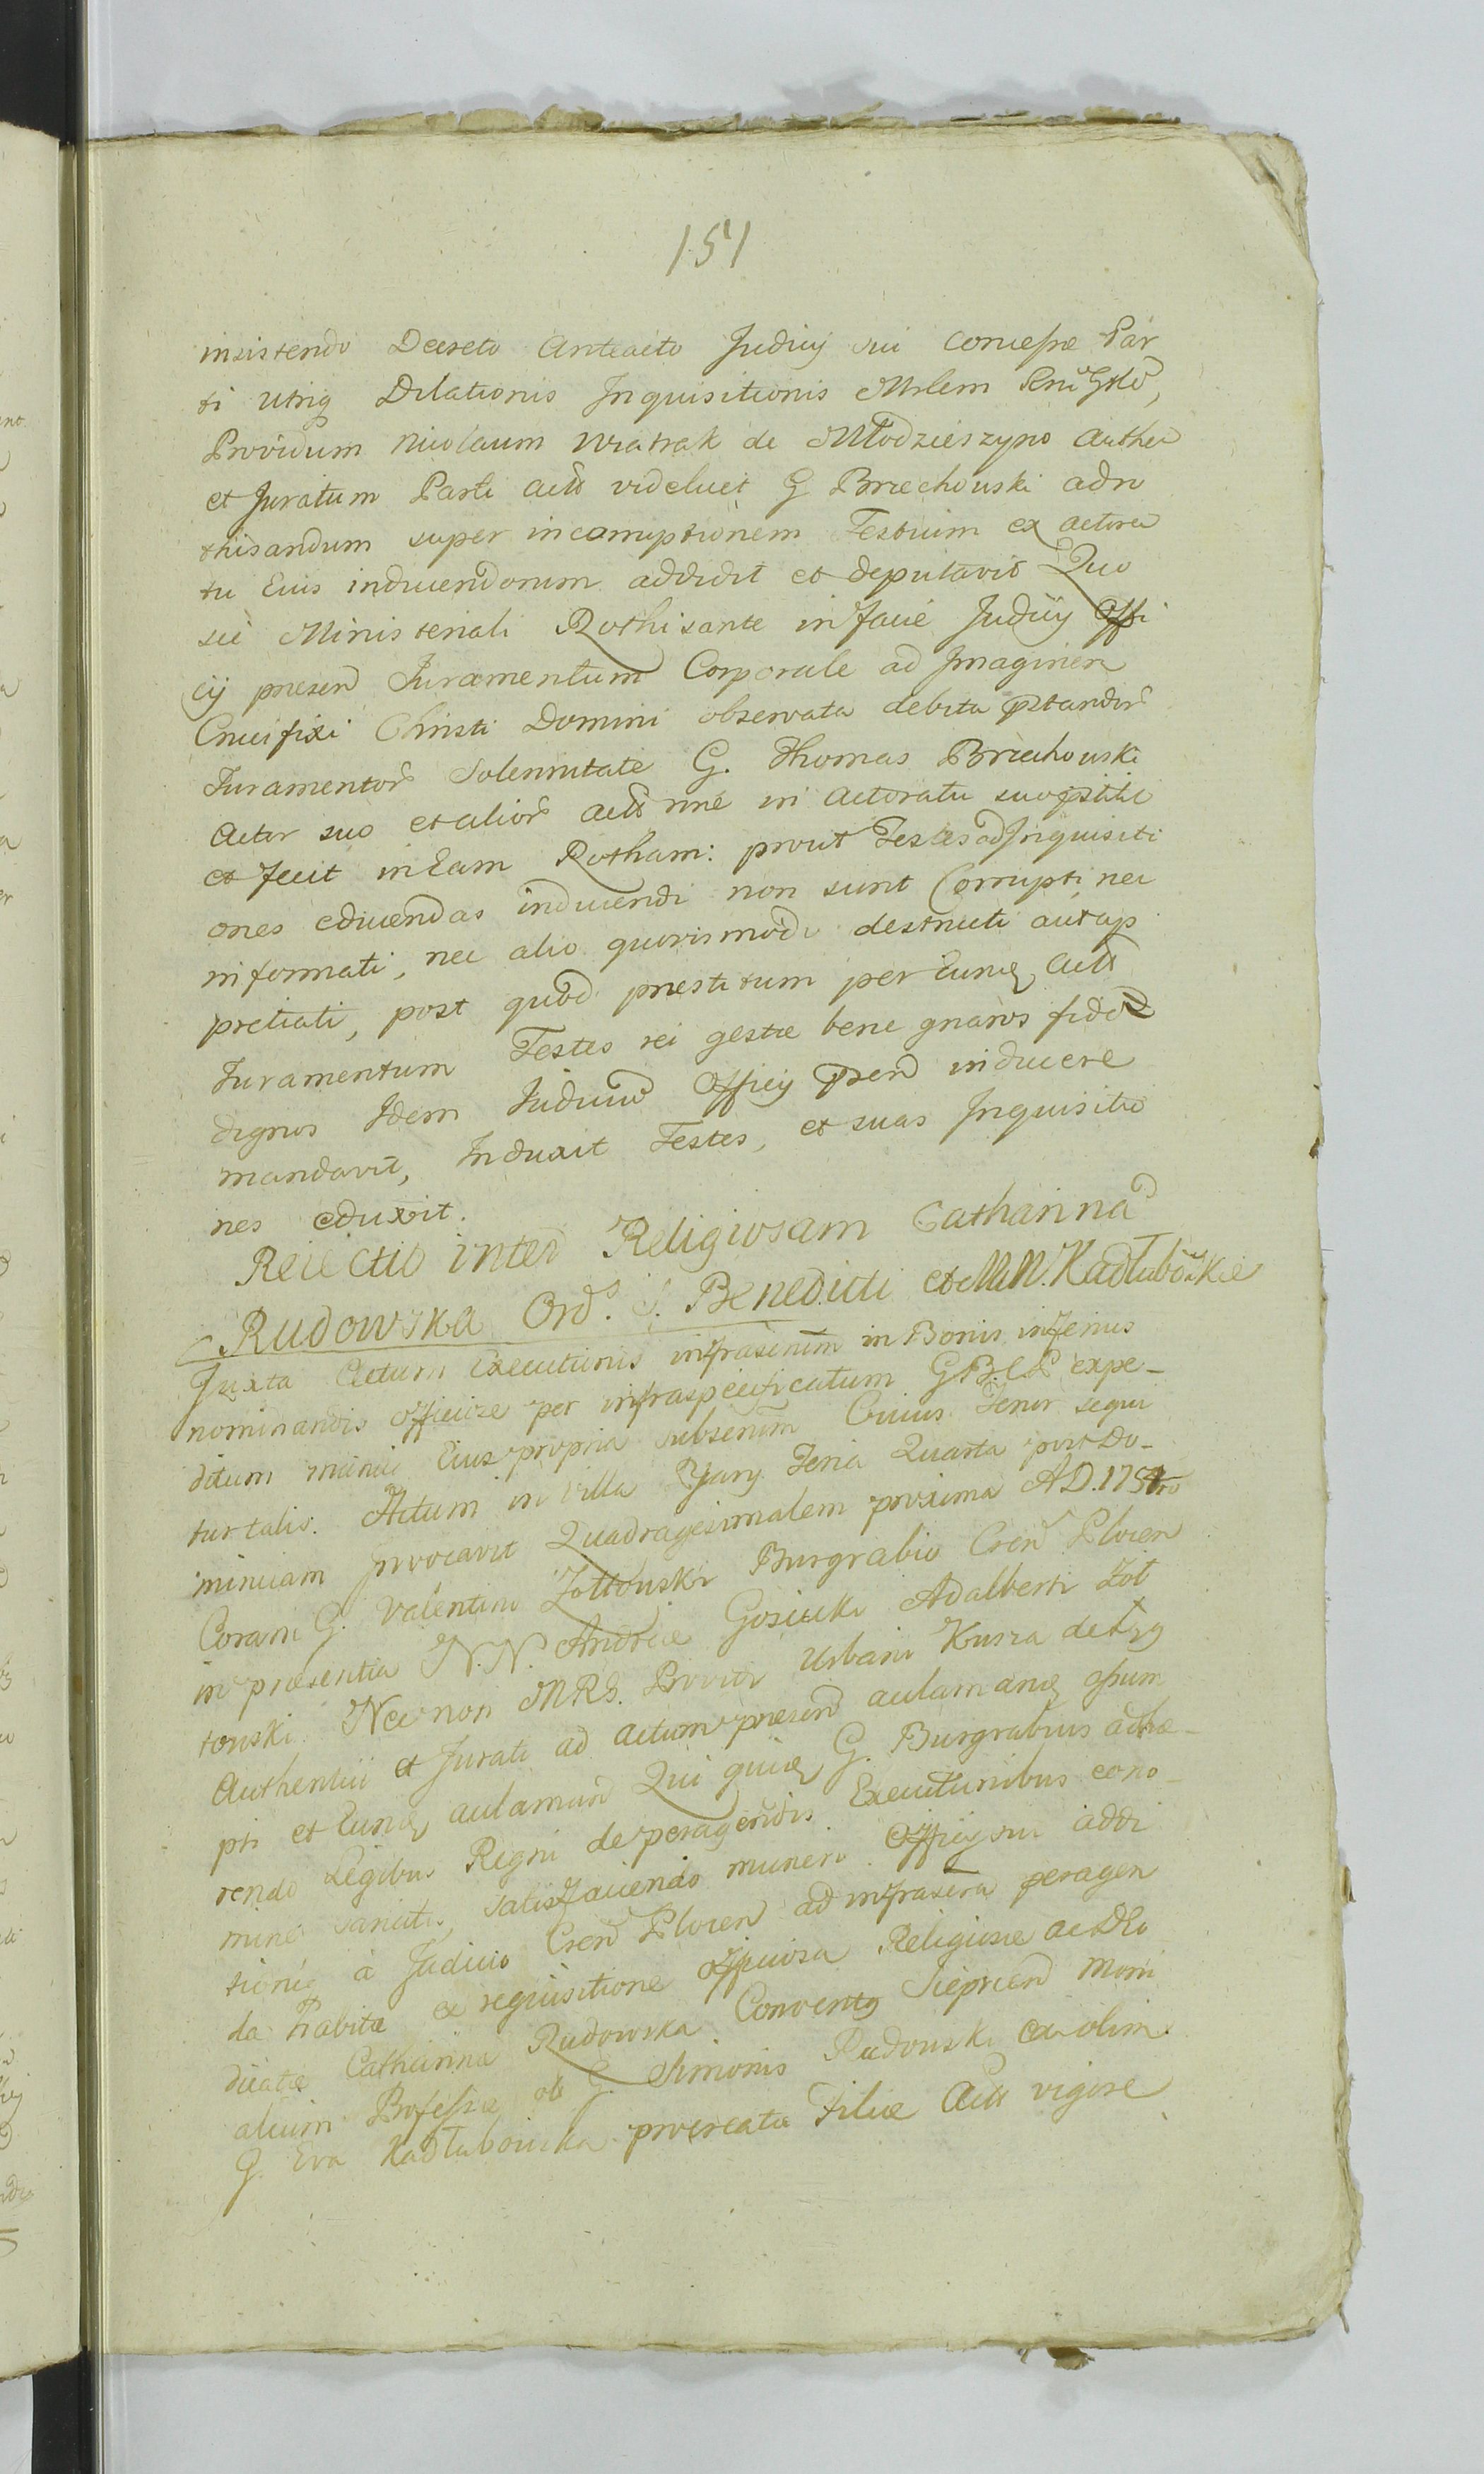 151
insistendo Decreto Anteacto Judicy sui concessae Par
ti utriq Dilationis Inquisitionis Mrlem
Providum Nicolaum Wratrak de Młodzieszyno Authen
et Juratum Parti Actt videlicet G Brzechowski adro
thisandum super incorruptionem Testium ex actora
tu Eius inducendorum addidit et deputavit Quo
sic Ministeriali Rothisante in facie Judicy Offi
cy presen Juramentum Corporale ad Imaginem
Crucifixi Christi Domini observata debita pstandor
Juramentor Solennitate G. Thomas Brzechowski
Actor suo et alior Actt nne in Actoratu suo pstitit
et fecit in Eam Rotham: prout Testes ad Inquisiti
ones educendas inducendi non sunt Corrupti nec
informati, nec alio quovismodo destructi aut ap
pretiati, post quod prestitum per Eunq Actt
Juramentum Testes rei gestae bene gnaros fide
dignos Idem Judicium Officy psen inducere
mandavit, Induxit Testes, et suas Inquisitio
nes eduxit.
Reiectio inter Religiosam Catharina
Rudowska Ord. S. Benedicti et MM. N. Kadłubowskie
Juxta Actum Executionis infrascrium in Bonis inferius
nominandis officiose per infraspecificatum GBCP expe-
ditum manu Eius propria subscrium Cuius Tenor sequi
tur talis. Actum in Villa Feria Quarta post Do-
minicam Invocavit Quadragesimalem proxima AD. 1751mo
Coram G. Valentino Zołtowski Burgrabio Cren Plocen
in praesentia N.N. Andreae Gosicki Adalberti Zoł
towski Nec non MRG. Providi Urbani Kusza de
Authentici et Jurati ad Actum presen aulamanq assum
pti et Eunq aulamum Qui quiq G. Burgrabius adhae-
rendo Legibus Regni de peragendis Executionibus eono-
mine sancitis, satisfaciendo muneri Officy sui addi
tioniq a Judicio Cren Plocen ad infrascra peragen
da habitae ex requisitione officiosa Religiosae ac DEo
dicatae Catharinae Rudowska Conventq Sieprcen Moni
alium Professae ob G. Simonis Rudowski ex olim
G. Eva Kadłubowska procreatae Filiae Actt vigore